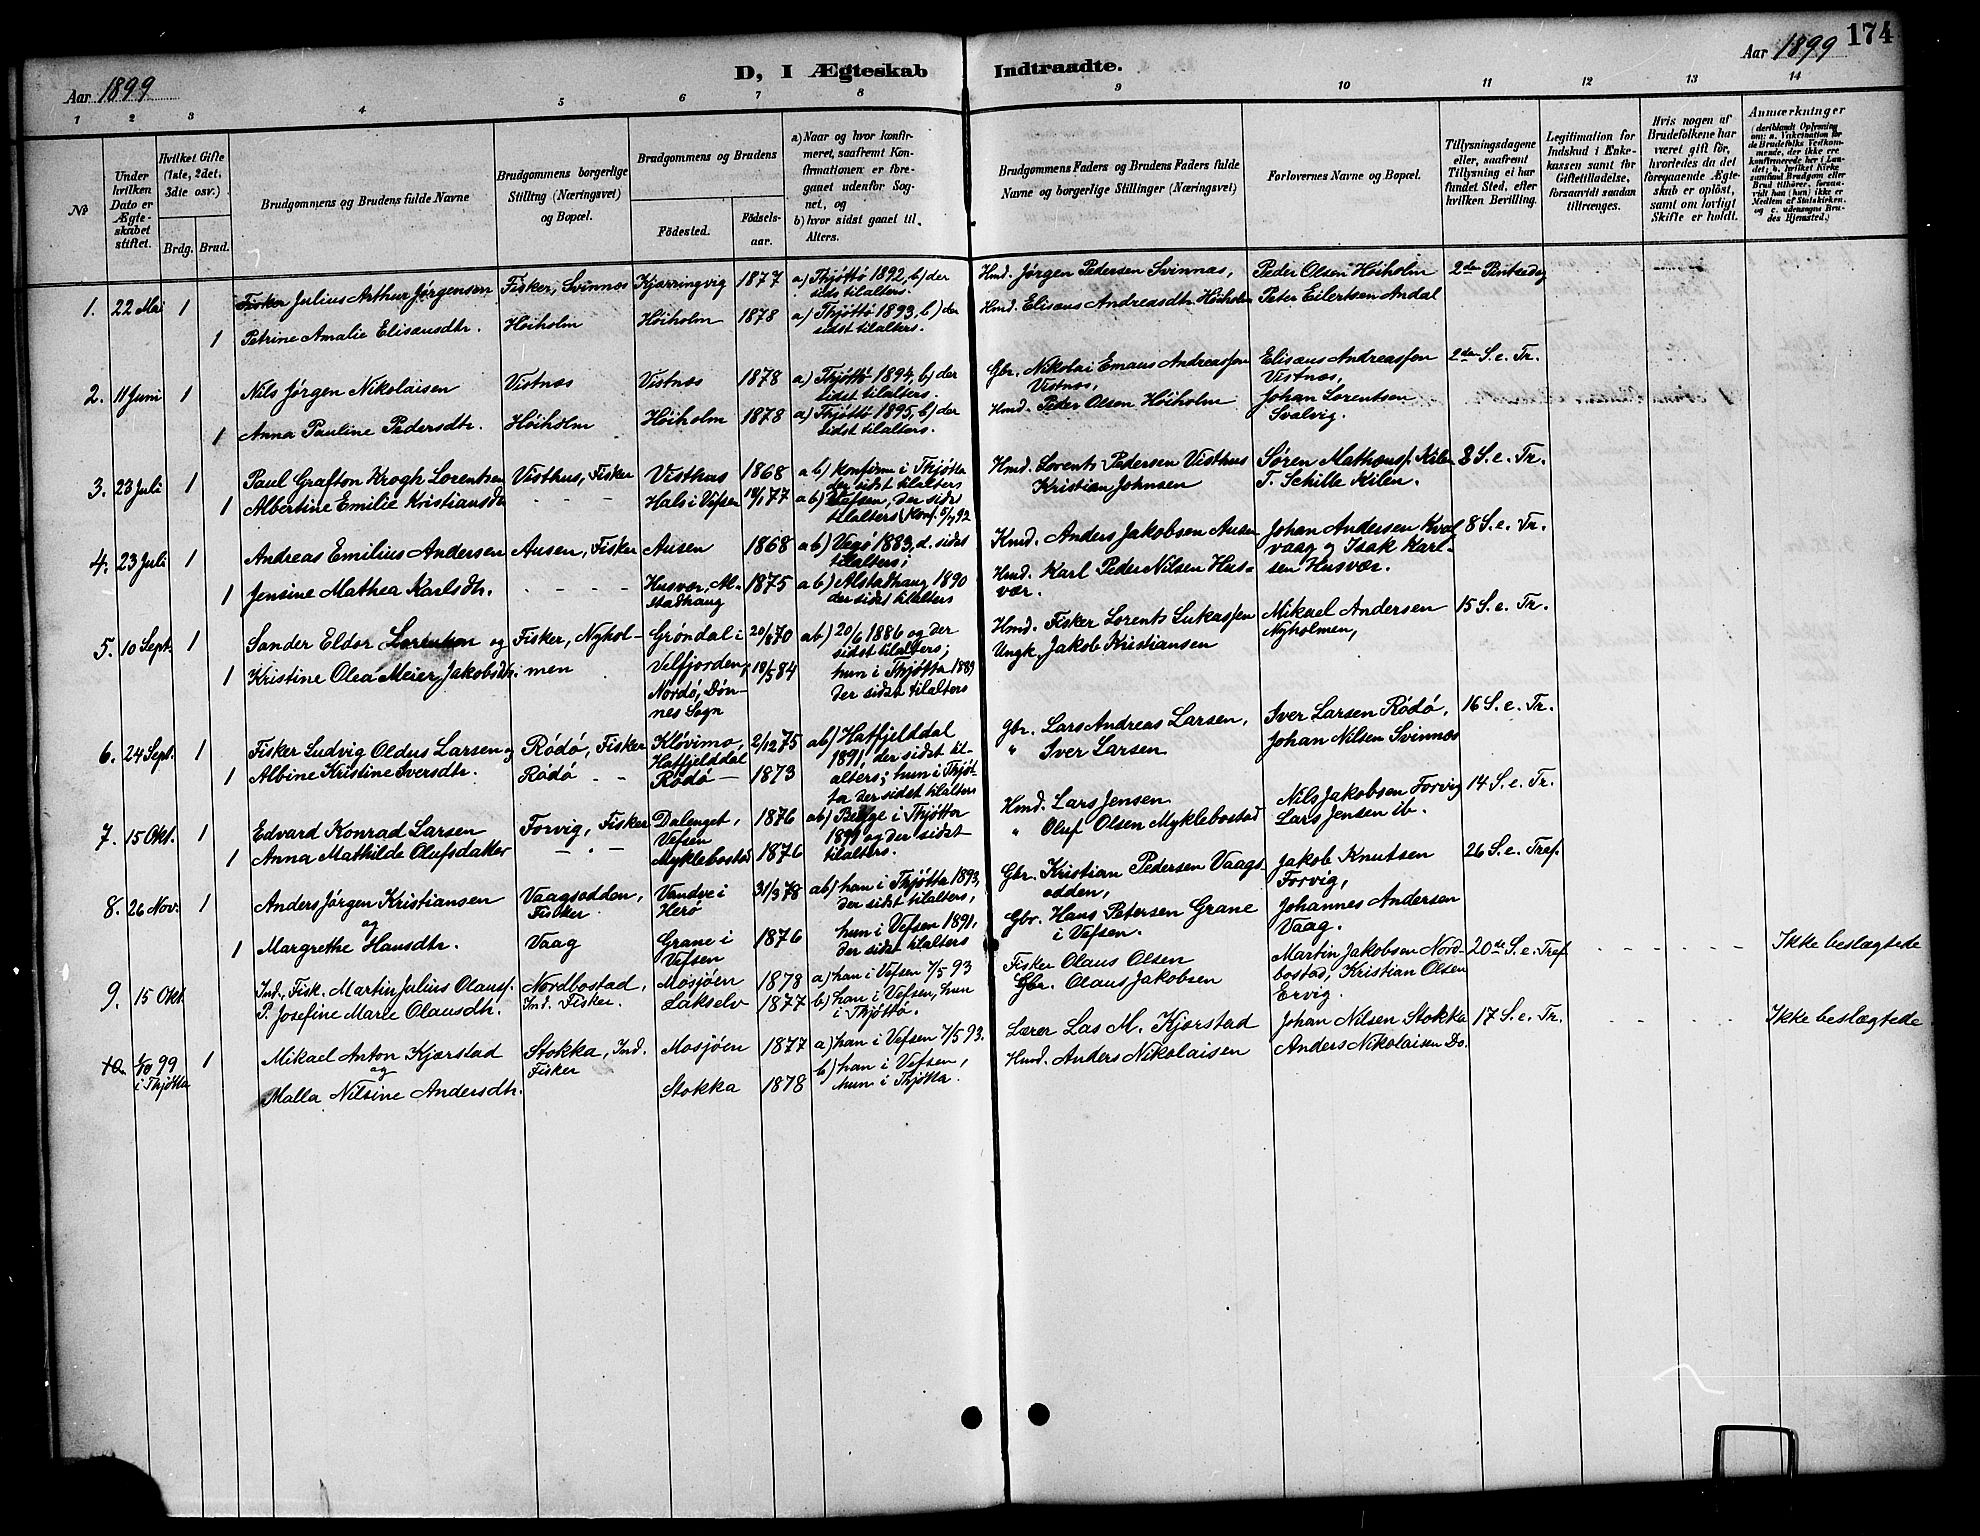 174
Aar 1899
D, I Ægteskab Indtraadte.
Aar 1899
1 2 3 4 5 6 7 8 9 10 11 12 13 14
No
Under hvilken Dato er Ægteskabet stiftet.
Hvilket Gifte (1ste, 2det, 3die osv.)
Brdg. Brud.
Brudgommens og Brudens fulde Navne
Brudgommens borgerlige Stilling (Næringsvei) og Bopæl.
Brudgommens og Brudens
Fødested.
Fødselsaar.
a) Naar og hvor konfirmeret, saafremt Konfirmationen er foregaaet udenfor Sognet, og
b) hvor sidst gaaet til Alters.
Brudgommens Faders og Brudens Faders fulde Navne og borgerlige Stillinger (Næringsvei)
Forlovernes Navne og Bopæl.
Tillysningsdagene eller, saafremt Tillysning ei har fundet Sted, efter hvilken Bevilling.
Legitimation for Indskud i Enkekassen samt for Giftetilladelse, forsaavidt saadan tiltrænges.
Hvis nogen af Brudefolkene har været gift før, hvorledes da det foregaaende Ægteskab er opløst, samt om lovligt Skifte er holdt.
Anmærkninger
(deriblandt Oplysning om: a. Vakcination for de Brudefolks Vedkommende, der ikke ere konfirmerede her i Landet; b. hvilket Kirkesamfund Brudgom eller Brud tilhører, forsaavidt han (hun) ikke er Medlem af Statskirken, og c. udensogns Brudes Hjemsted.)
1. 22 Mai 1 Fisker Julius Arthur Jørgensen Fisker, Svinnæs Kjærringvig 1877 a) Thjøttø 1892, b) der sidst tilalters. Hmd. Jørgen Pedersen Svinnæs, Peder Olsen Høiholm 2den Pintsedag
1 Petrine Amalie Elisæusdtr. Høiholm Høiholm 1878 a) Thjøttø 1893, b) der sidst tilalters. Hmd. Elisæus Andreasdtr. Høiholm Peter Eilertsen Andal
2. 11 Juni 1 Nils Jørgen Nikolaisen Vistnæs Vistnæs 1878 a) Thjøttø 1894, b) der sidst tilalters. Gbr. Nikolai Emaus Andreassen Vistnæs, Elisæus Andreassen Vistnæs, 2den S. e. Tr.
1 Anna Pauline Pedersdtr. Høiholm Høiholm 1878 a) Thjøttø 1895, b) der sidst tilalters. Hmd. Peder Olsen Høiholm Johan Lorentsen Svalvig.
3. 23 Juli 1 Paul Grafton Krogh Lorentsen Visthus, Fisker Visthus 1868 a b) konfirm i Thjøtta der sidst tilalters Hmd. Lorents Pedersen Visthus Søren Mathæusf. Kilen 8 S. e. Tr.
1 Albertine Emilie Kristiansdtr - - - Hals i Vefsen 18/1 77 a b) Vefsen, der sidst tilalters (Konf. 5/7 92 Kristian Johnsen T. Schille Kilen.
4. 23 Juli 1 Andreas Emilius Andersen Ausen, Fisker Ausen 1868 a b) Vegø 1883, d. sidst tilalters; Knud. Anders Jakobsen Ausen Johan Andersen Kvalvaag og Isak Karlsen Husvær. 8 S. e. Tr.
1 Jensine Mathea Karlsdtr. - - - Husvær, Alstadhaug 1875 a b) Alstadhaug 1890 der sidst tilalters Hmd. Karl Peder Nilsen Husvær.
5. 10 Sept. 1 Sander Eldor Lorentsen og Fisker, Nyholmen Grøndal i Velfjorden, 20/8 70 a b) 20/6 1886 og der sidst tilalters; Hmd. Fisker Lorents Lukassen Mikael Andersen Nyholmen, 15 S. e. Tr.
1 Kristine Olea Meier Jakobsdtr. Nordø, Dønnes Sogn 18/5 84 hun i Thjøtta 1889 der sidst tilalters Ungk. Jakob Kristiansen
6. 24 Sept. 1 Fisker Ludvig Oldus Larsen og Rødø, Fisker Kløvimo, Hatfjelddal 2/12 75 ab) Hatfjelddal 1891, der sidst tilalters; hun i Thjøtta der sidst tilalters Gbr. Lars Andreas Larsen, Iver Larsen Rødø, 16 S. e. Tr.
1 Albine Kristine Iversdtr. Rødø - - Rødø - 1873 " Iver Larsen Johan Nilsen Svinnæs
7. 15 Okt. 1 Edvard Konrad Larsen Forvig, Fisker Dalenget, Vefsen 1876 ab) Begge i Thjøtta 1899 og der sidst tilalters. Hmd. Lars Jensen Nils Jakobsen Forvig 14 S. e. Tr.
1 Anna Mathilde Olufsdatter - " - Myklebostad 1876 " Oluf Olsen Myklebostad Lars Jensen ib.
8. 26 Nov. 1 Anders Jørgen Kristiansen og Vaagsodden, Fisker Vandve i Herø 31/3 78 ab) han i Thjøtta 1893, der sidst tilalters, Gbr. Kristian Pedersen Vaagsodden, Jakob Knutsen Forvig, 26 S. e. Tref.
1 Margrethe Hansdtr. Vaag Grane i Vefsen 1876 hun i Vefsen 1891, der sidst tilalters Gbr. Hans Petersen Grane i Vefsen. Johannes Andersen Vaag.
9. 15 Okt. Ind., Fisk. Martin Julius Olausf. Nordbostad, Ind. Fisker. Mosjøen 1878 a) han i Vefsen 7/5 93 Fisker Olaus Olsen Martin Jakobsen Nordbostad, Kristian Olsen Ervig. 20de S. e. Tref - - - - Ikke beslægtede
P. Josefine Marie Olausdtr. Lakselv 1877 b) han i Vefsen, hun i Thjøttø. Gbr. Olaus Jakobsen
10. 1/10 99 i Thjøtta 1 Mikael Anton Kjærstad og Stokka, Ind. Fisker Mosjøen 1877 a) han i Vefsen 7/5 93. Lærer Las M. Kjærstad Johan Nilsen Stokka 17 S. e. Tr. - - - - Ikke beslægtede
Malla Nilsine Andersdtr. Stokka 1878 b) han i Vefsen, hun i Thjøtta. Hmd. Anders Nikolaisen Anders Nikolaisen Do.